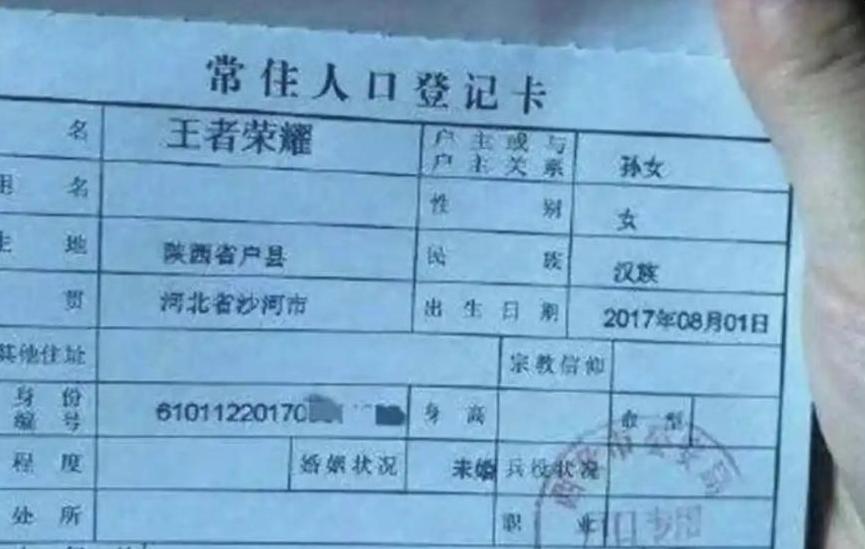 常住人口登记卡
名 王者荣耀 户主或与户主关系 孙女
用名 性别 女
生地 陕西省户县 民族 汉族
贯 河北省沙河市 出生日期 2017年08月01日
其他住址 宗教信仰
身份编号 6101122017 身高 血型
程度 婚姻状况 未婚 兵役状况
处所 职业
市公安局
户口专用